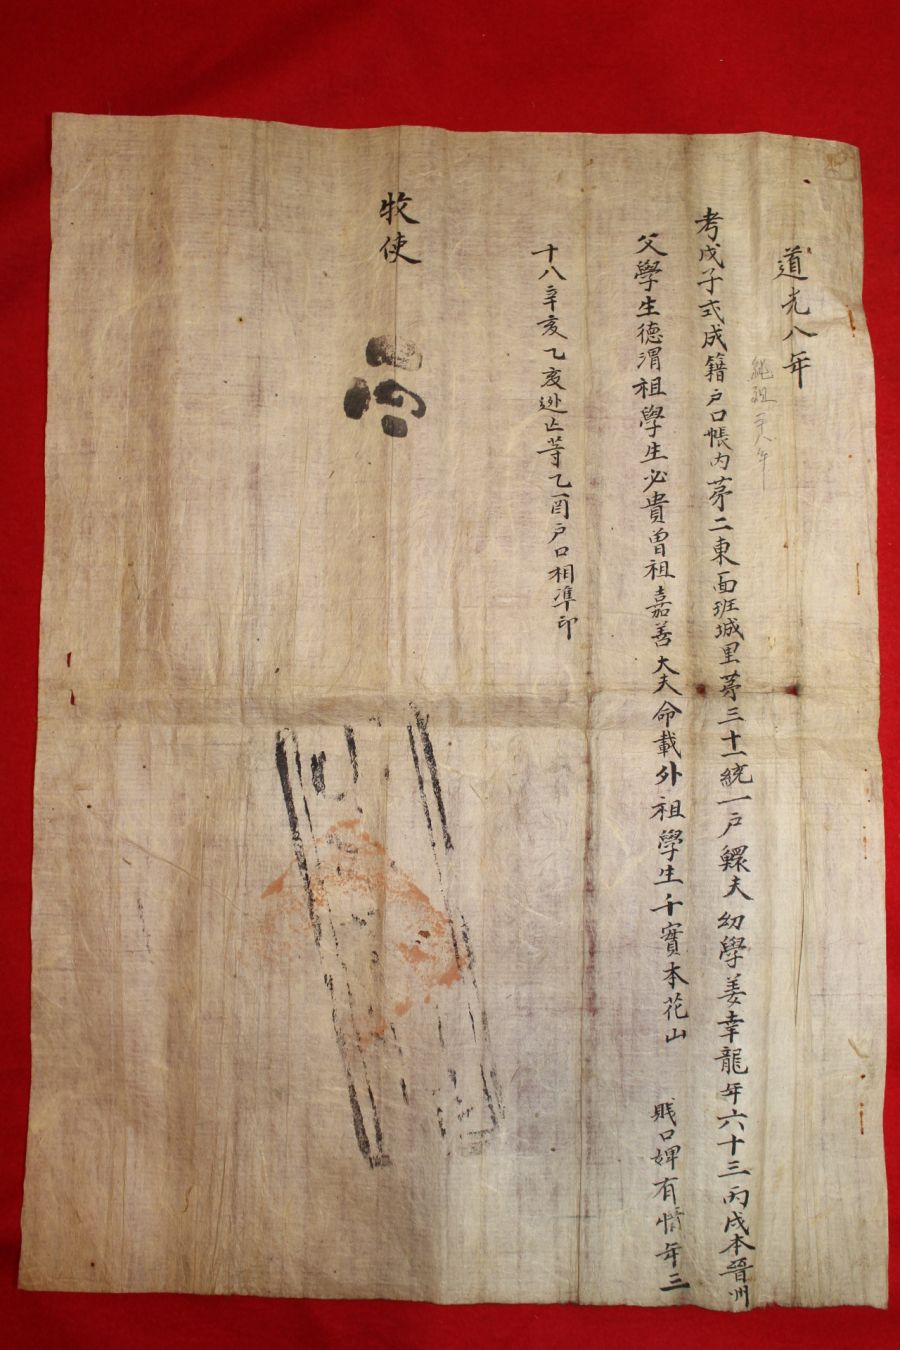 道光八年
純祖二十八年
考戊子式成籍戶口帳內茅二東面班城里茅三十一統一戶鰥夫幼學姜幸龍年六十三丙戌本晉州
父學生德渭祖學生必貴曾祖嘉善大夫命載外祖學生千實本花山 賤口婢有情年三
十八辛亥乙亥逃亡等乙酉戶口相準印
牧使